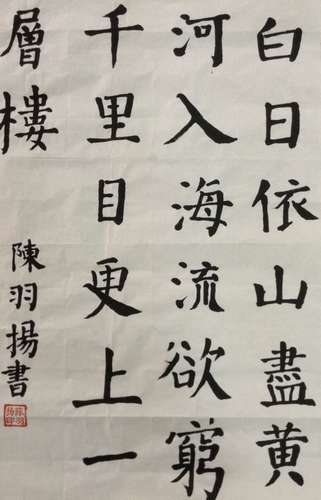 白日依山盡黃
河入海流欲窮
千里目更上一
層樓
陳羽揚書